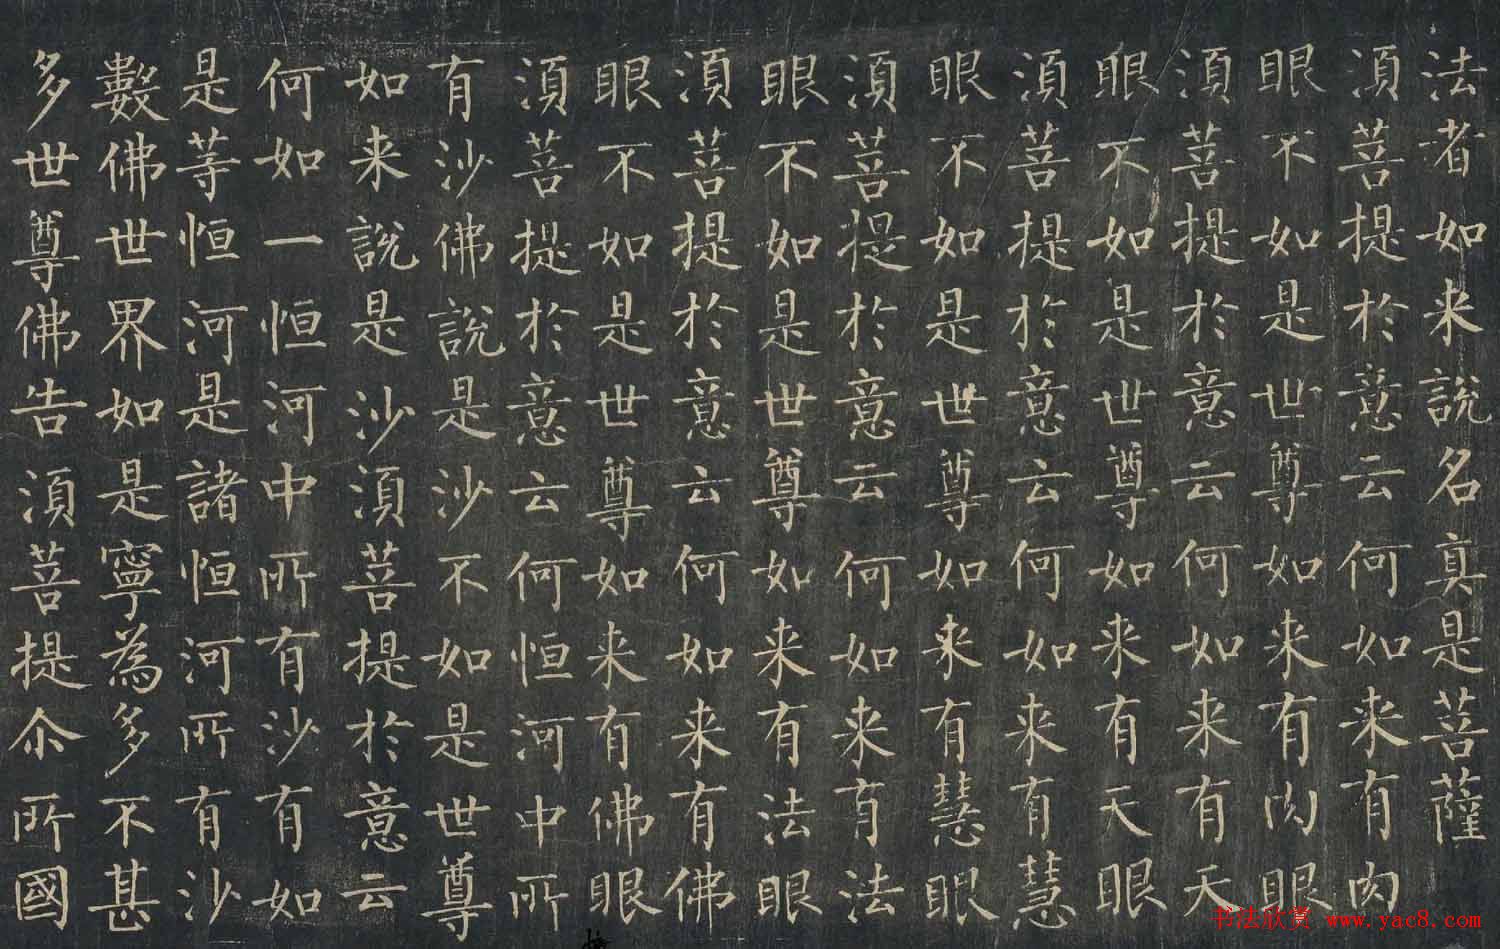 法者如来說名真是菩薩
湏菩提於意云何如来有肉
眼不如是世尊如来有肉眼
湏菩提於意云何如来有天
眼不如是世尊如来有天眼
湏菩提於意云何如来有慧
眼不如是世尊如来有慧眼
湏菩提於意云何如来有法
眼不如是世尊如来有法眼
湏菩提於意云何如来有佛
眼不如是世尊如来有佛眼
湏菩提於意云何恒河中所
有沙佛說是沙不如是世尊
如来說是沙湏菩提於意云
何如一恒河中所有沙有如
是等恒河是諸恒河所有沙
數佛世界如是寧為多不甚
多世尊佛告湏菩提尒所國
书法欣赏 www.yac8.com